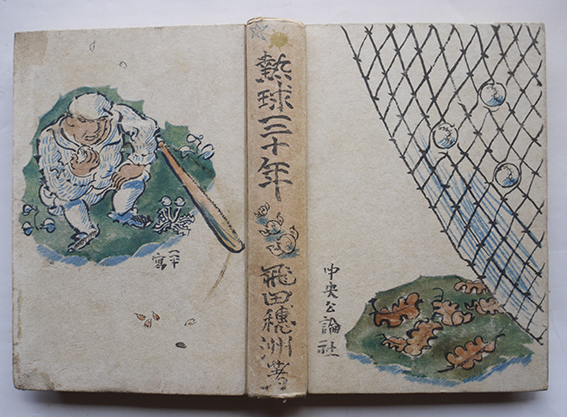 熱球三十年
飛田穂洲著
中央公論社
一平
寫